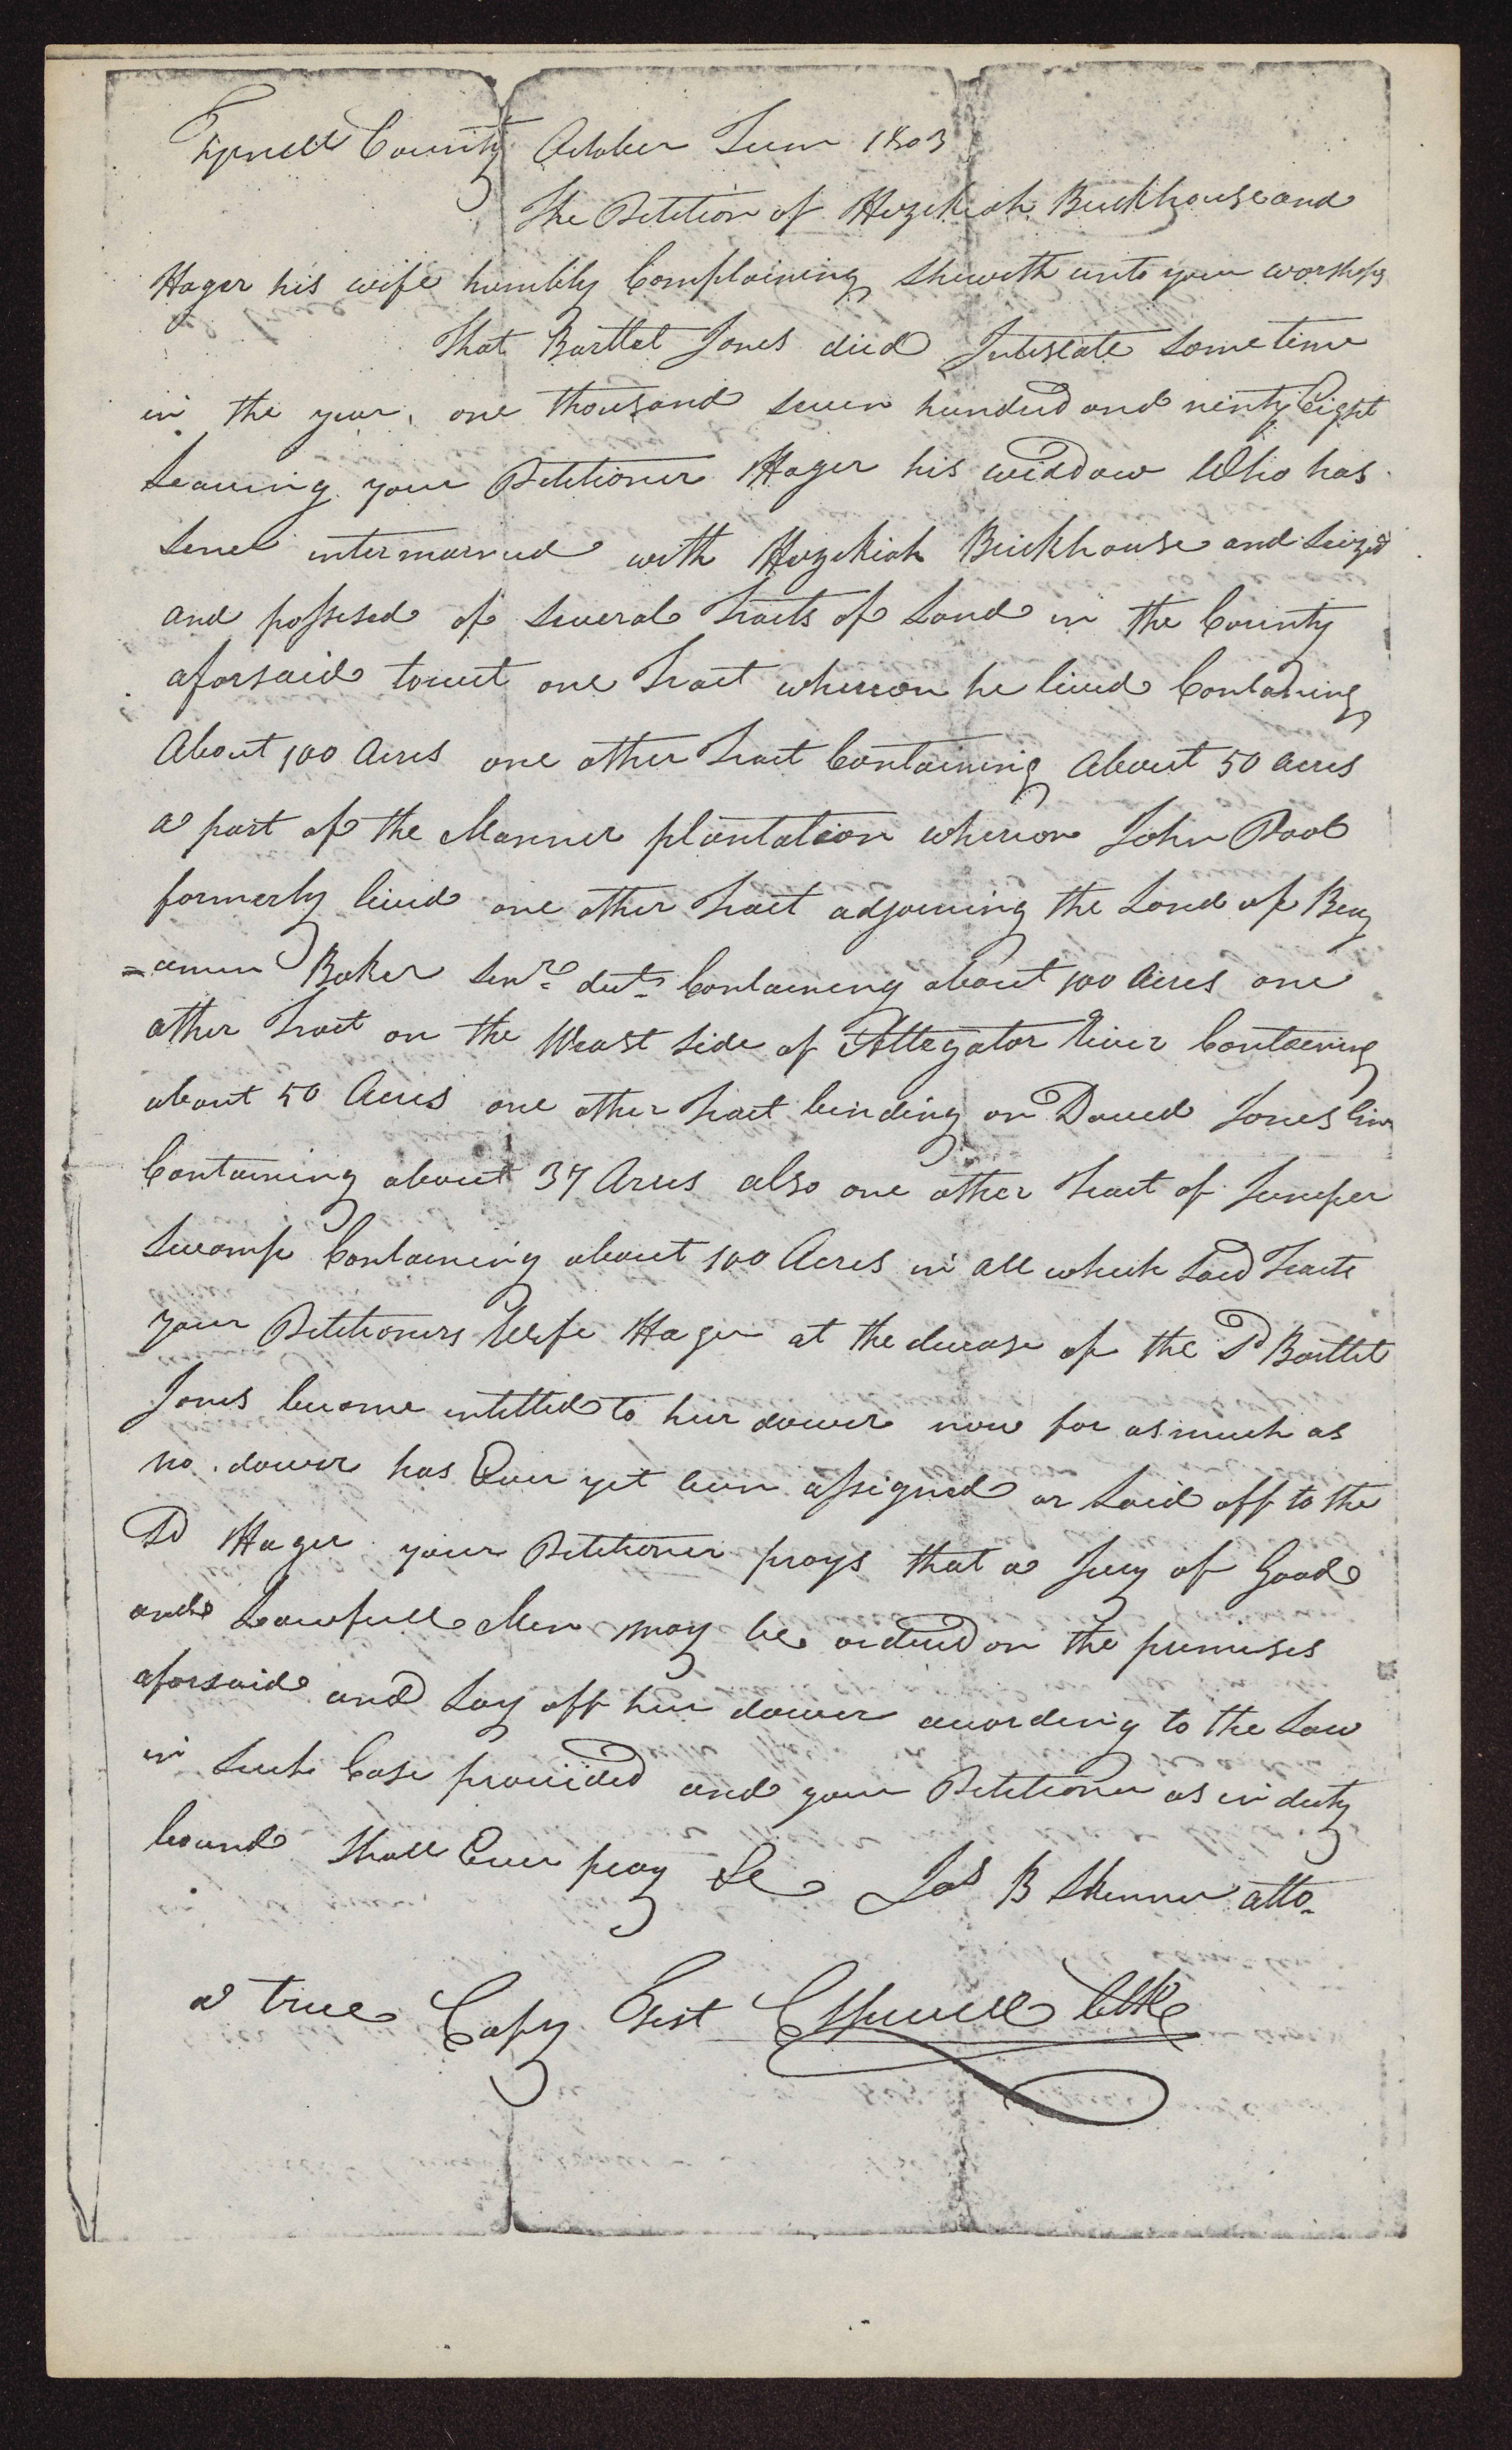 Tyrrell County October Term 1803
The Petition of Hezekiah Buckhouse and
Hager his wife humbly Complaining Sheweth unto your worships
That Bartlet Jones died Intestate Some time
in the year, one thousand Seven hundred and ninty Eight
Leaving your Petitioner Hager his widdow Who has
Sence intermarried with Hezekiah Buckhouse and Seized
and possesed of Several Tracts of Land in the County
aforsaid towit one Tract whereon he lived Containing
About 100 Acres one other Tract Containing About 50 acres
a part of the Manner plantation whereon John Pool
formerly lived one other Tract adjoining the Land of Benj
=amin Baker Senr decd Containing about 100 Acres one
other Tract on the West Side of Allegator River Containing
about 50 Acres one other Tract binding on David Jones line
Containing about 37 Acres also one other Tract of Juneper
Swamp Containing about 100 Acres in all which Said Tracts
your Petitioners Wife Hager at the decease of the Sd Bartlet
Jones became intitled to her dower now for as much as
no dower has Ever yet been assigned or Laid off to the
Sd Hager your Petitioner prays that a Jury of Good
and Lawfull Men may be ordered on the premises
aforsaid and Lay off her dower according to the Law
in Such Case provided and your Petitioner as in duty
bound Shall Ever pray &c Jas B Skinner atto.
a true Copy Test Clk